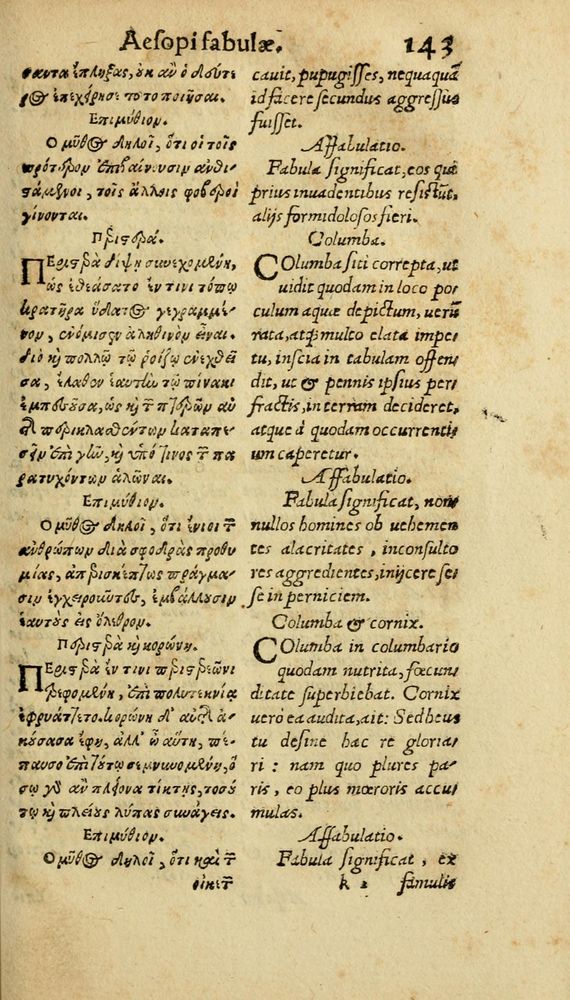 Aesopi fabulæ. 143
σαντα ἐπληξας, οὐκ ἂν ὁ δεύτε
ρος ἐπεχείρησε τοῦτο ποιῆσαι.
Ἐπιμύθιον.
Ὁ μῦθος δηλοῖ, ὅτι οἱ τοῖς
πρότερον ἐπιβαίνουσιν ἀνθι
στάμενοι, τοῖς ἄλλοις φοβεροὶ
γίνονται.
Περιστερά.
ΠΕριστερὰ δίψῃ συνεχομένη,
ὡς ἐθεάσατο ἔν τινι τόπῳ
κρατῆρα ὕδατος γεγραμμέ-
νον, ἐνόμισεν ἀληθινὸν εἶναι.
διὸ καὶ πολλῷ τῷ ῥοίζῳ ἐνεχθεῖ
σα, ἔλαθεν ἑαυτὴν τῷ πίνακι
ἐμπεσοῦσα, ὡς καὶ τῶν πτερῶν αὐ
τῆς περικλασθέντων καταπε-
σεῖν ἐπὶ γῆν, καὶ ὑπό τινος τῶν πα
ρατυχόντων ἁλῶναι.
Ἐπιμύθιον.
Ὁ μῦθος δηλοῖ, ὅτι ἔνιοι τῶν
ἀνθρώπων διὰ σφοδρὰς προθυ
μίας, ἀπερισκέπτως πράγμα-
σιν ἐγχειροῦντες, ἐμβάλλουσιν
ἑαυτοὺς εἰς ὄλεθρον.
Περιστερὰ καὶ κορώνη.
ΠΕριστερὰ ἔν τινι περιστερεῶνι
τρεφομένη, ἐπὶ πολυτεκνίᾳ
ἐφρυάττετο. κορώνη δ' αὐτῆς ἀ-
κούσασα ἔφη, ἀλλ' ὦ αὕτη, πέ-
παυσο ἐπὶ τούτῳ σεμνυνομένη, ὅ
σῳ γὰρ ἂν πλείονα τίκτῃς, τοσού
τῳ καὶ πλείους λύπας συνάγεις.
Ἐπιμύθιον.
Ὁ μῦθος δηλοῖ, ὅτι καὶ τῶν
οἰκετῶν
cauit, pupugisses, nequaquã
id facere secundus aggressus
fuisset.
Affabulatio.
Fabula significat, eos qui
prius inuadentibus resistũt,
alijs formidolosos fieri.
Columba.
COlumba siti correpta, ut
uidit quodam in loco po/
culum aquæ depictum, uerũ
rata, atq; multo elata impe/
tu, inscia in tabulam offen/
dit, ut & pennis ipsius per/
fractis, in terram decideret,
atque à quodam occurrenti/
um caperetur.
Affabulatio.
Fabula significat, non/
nullos homines ob uehemen/
tes alacritates, inconsulto
res aggredientes, inijcere se/
se in perniciem.
Columba & cornix.
COlumba in columbario
quodam nutrita, fœcun/
ditate superbiebat. Cornix
uero ea audita, ait: Sed heus
tu desine hac re gloria/
ri: nam quo plures pa/
ris, eo plus mœroris accu/
mulas.
Affabulatio.
Fabula significat, ex
k 2 famulis